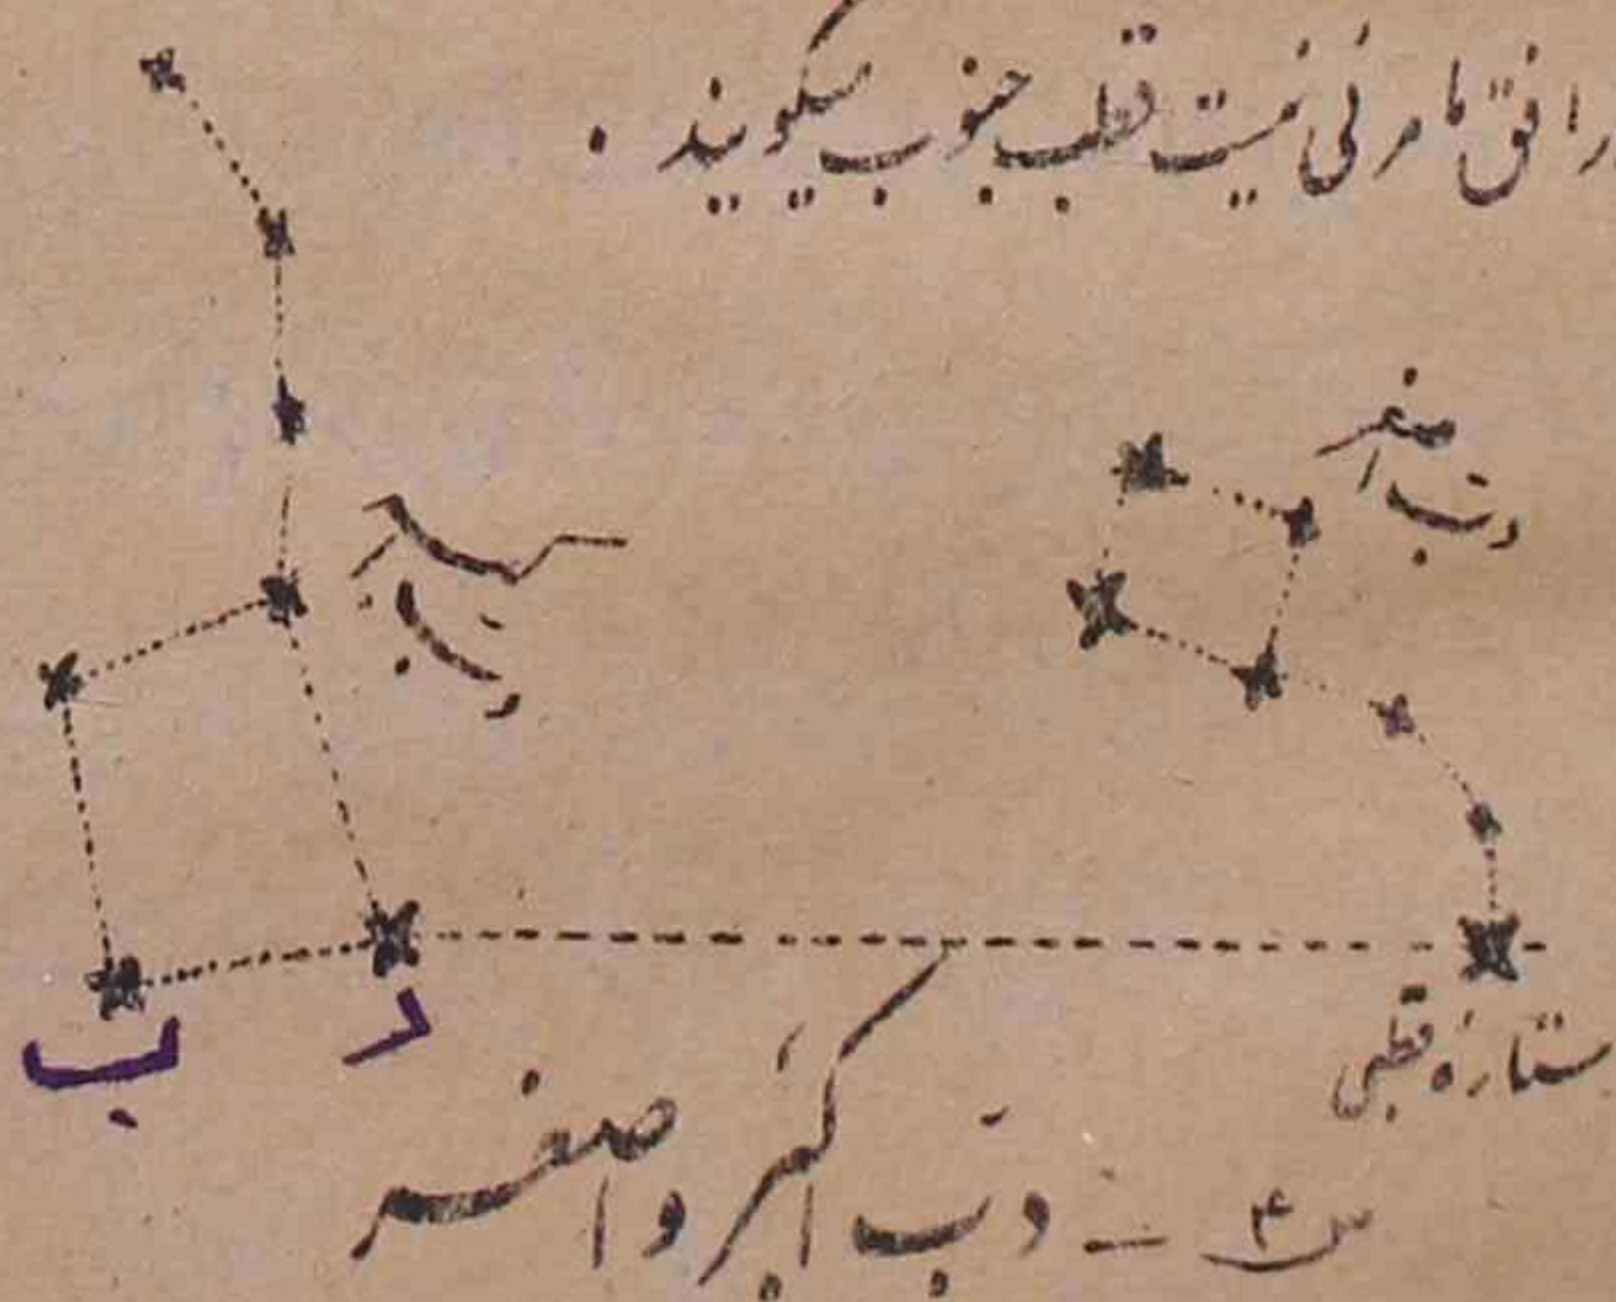 در افق ما مرئی نیست قطب جنوب میگویند .
دب اصغر
دب اکبر
ب
د
ستارهٔ قطبی
ش ۴ — دب اکبر و اصغر